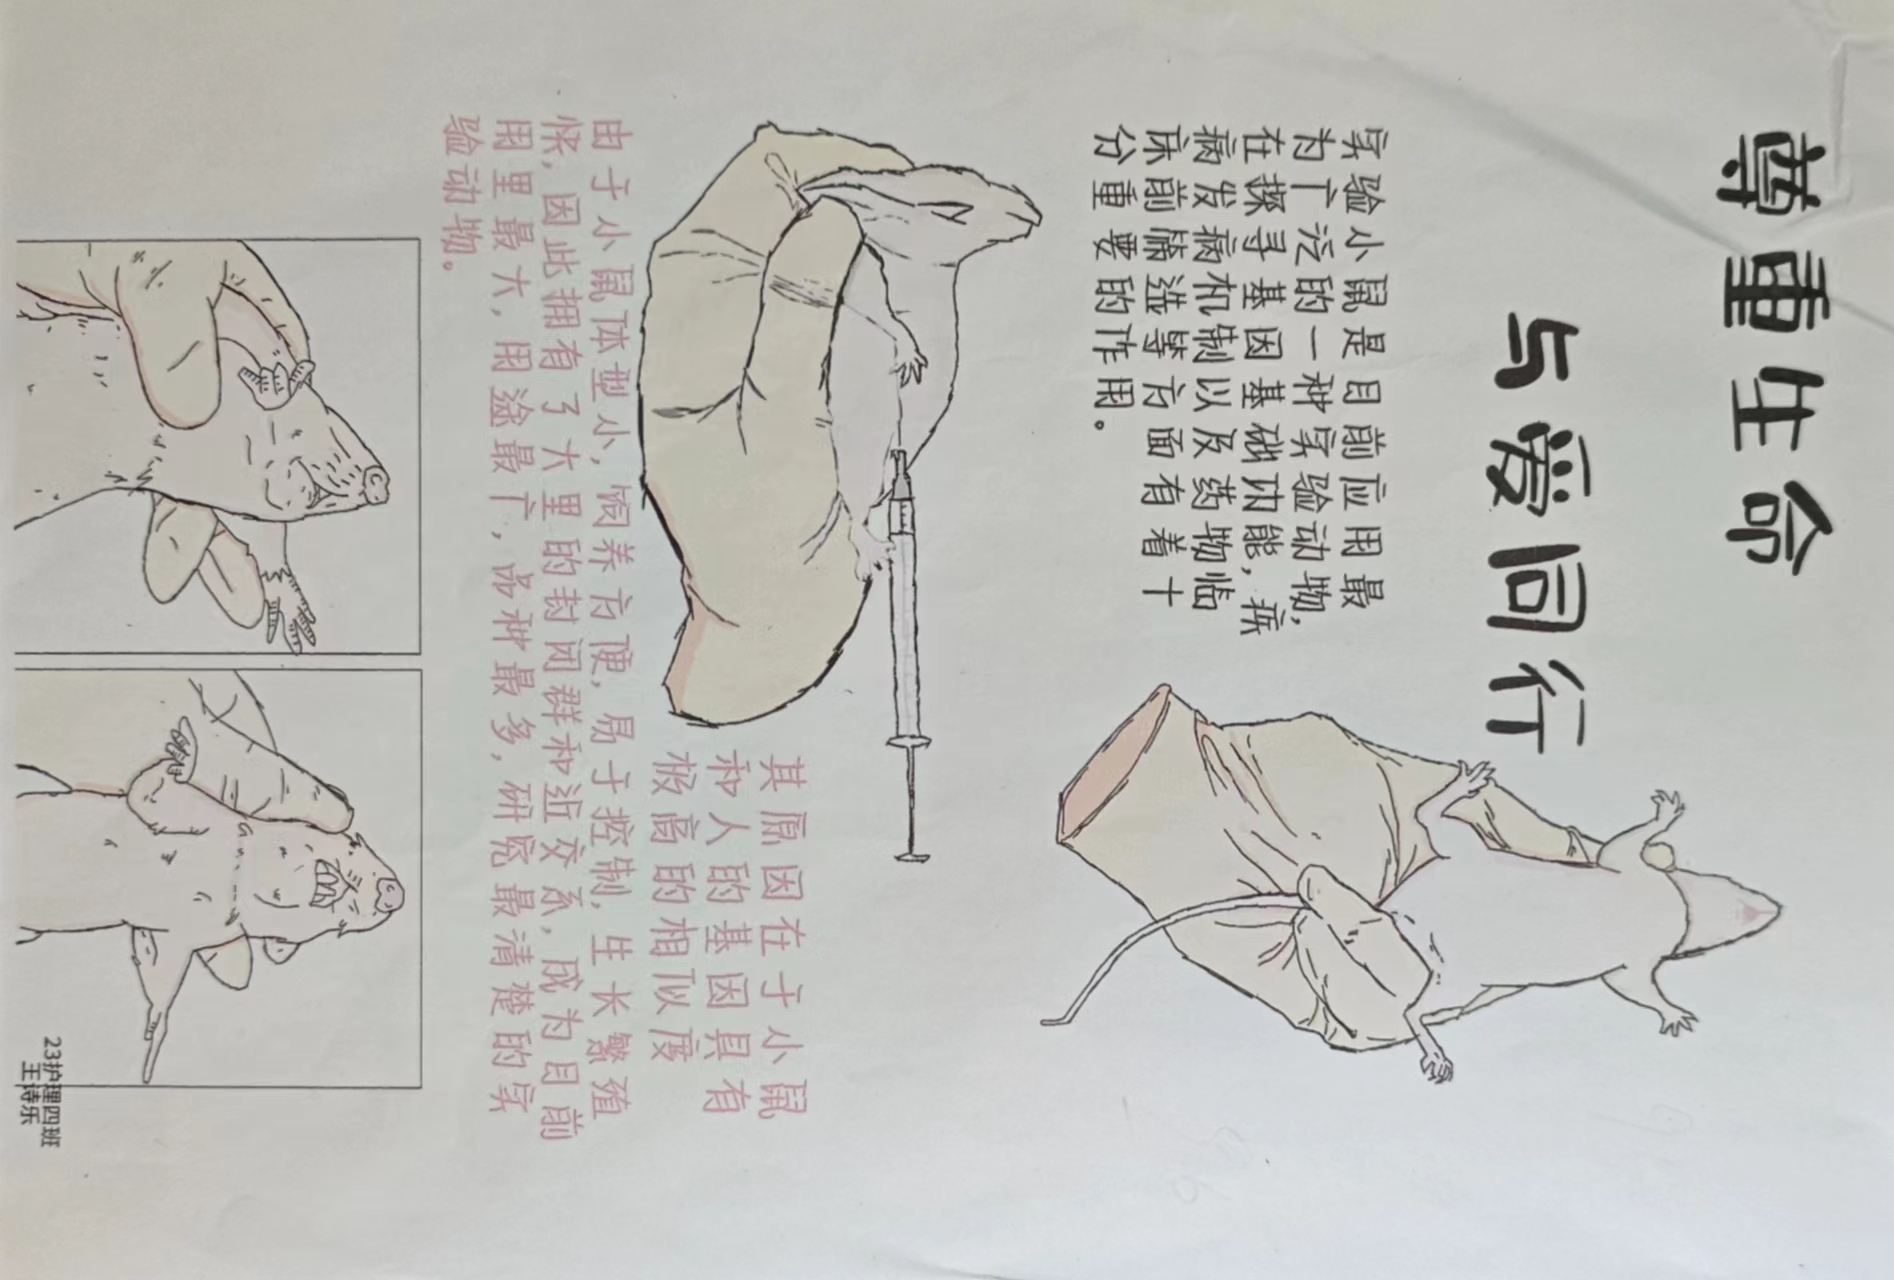 尊重生命
与爱同行
实验小鼠是目前应用最
为广泛的一种实验动物,
在探寻基因基础功能,疾
病发病机制以及药物临
床前筛选等方面有着十
分重要的作用。
其原因在于小鼠
和人的基因具有
极高的相似度
由于小鼠体型小,饲养方便,易于控制,生长繁殖
快,因此拥有了大量的封闭群和近交系,成为目前
用量最大,用途最广,品种最多,研究最清楚的实
验动物。
23护理四班
王诗乐